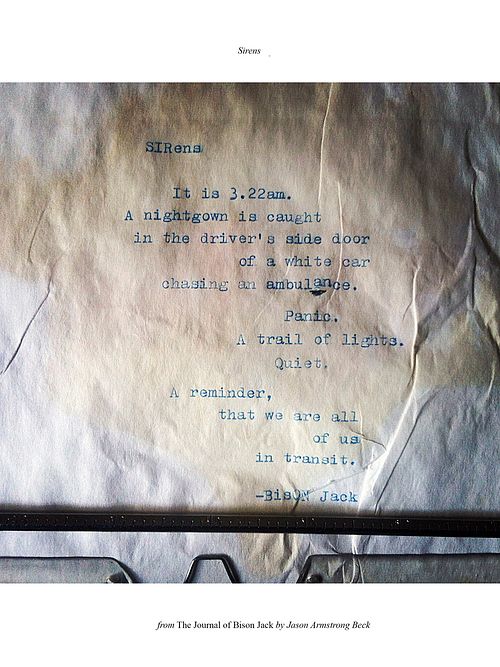 Sirens
SIRens
It is 3.22am.
A nightgown is caught
in the driver's side door
of a white car
chasing an ambulance.
Panic.
A trail of lights.
Quiet.
A reminder,
that we are all
of us
in transit.
-BisON Jack
from The Journal of Bison Jack by Jason Armstrong Beck